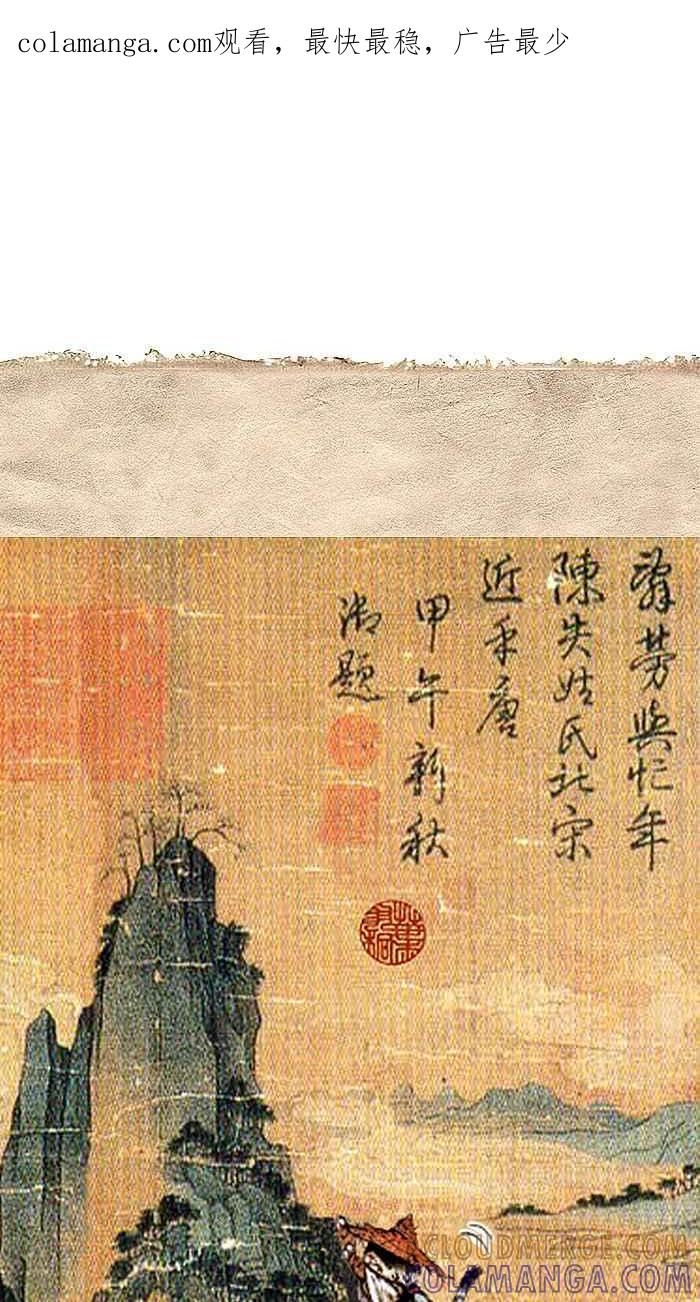 colamanga.com观看，最快最稳，广告最少
辭勞與忙年
陳失姓氏北宋
近乎唐
甲午新秋
御題
CLOUDMERGE.COM
COLAMANGA.COM